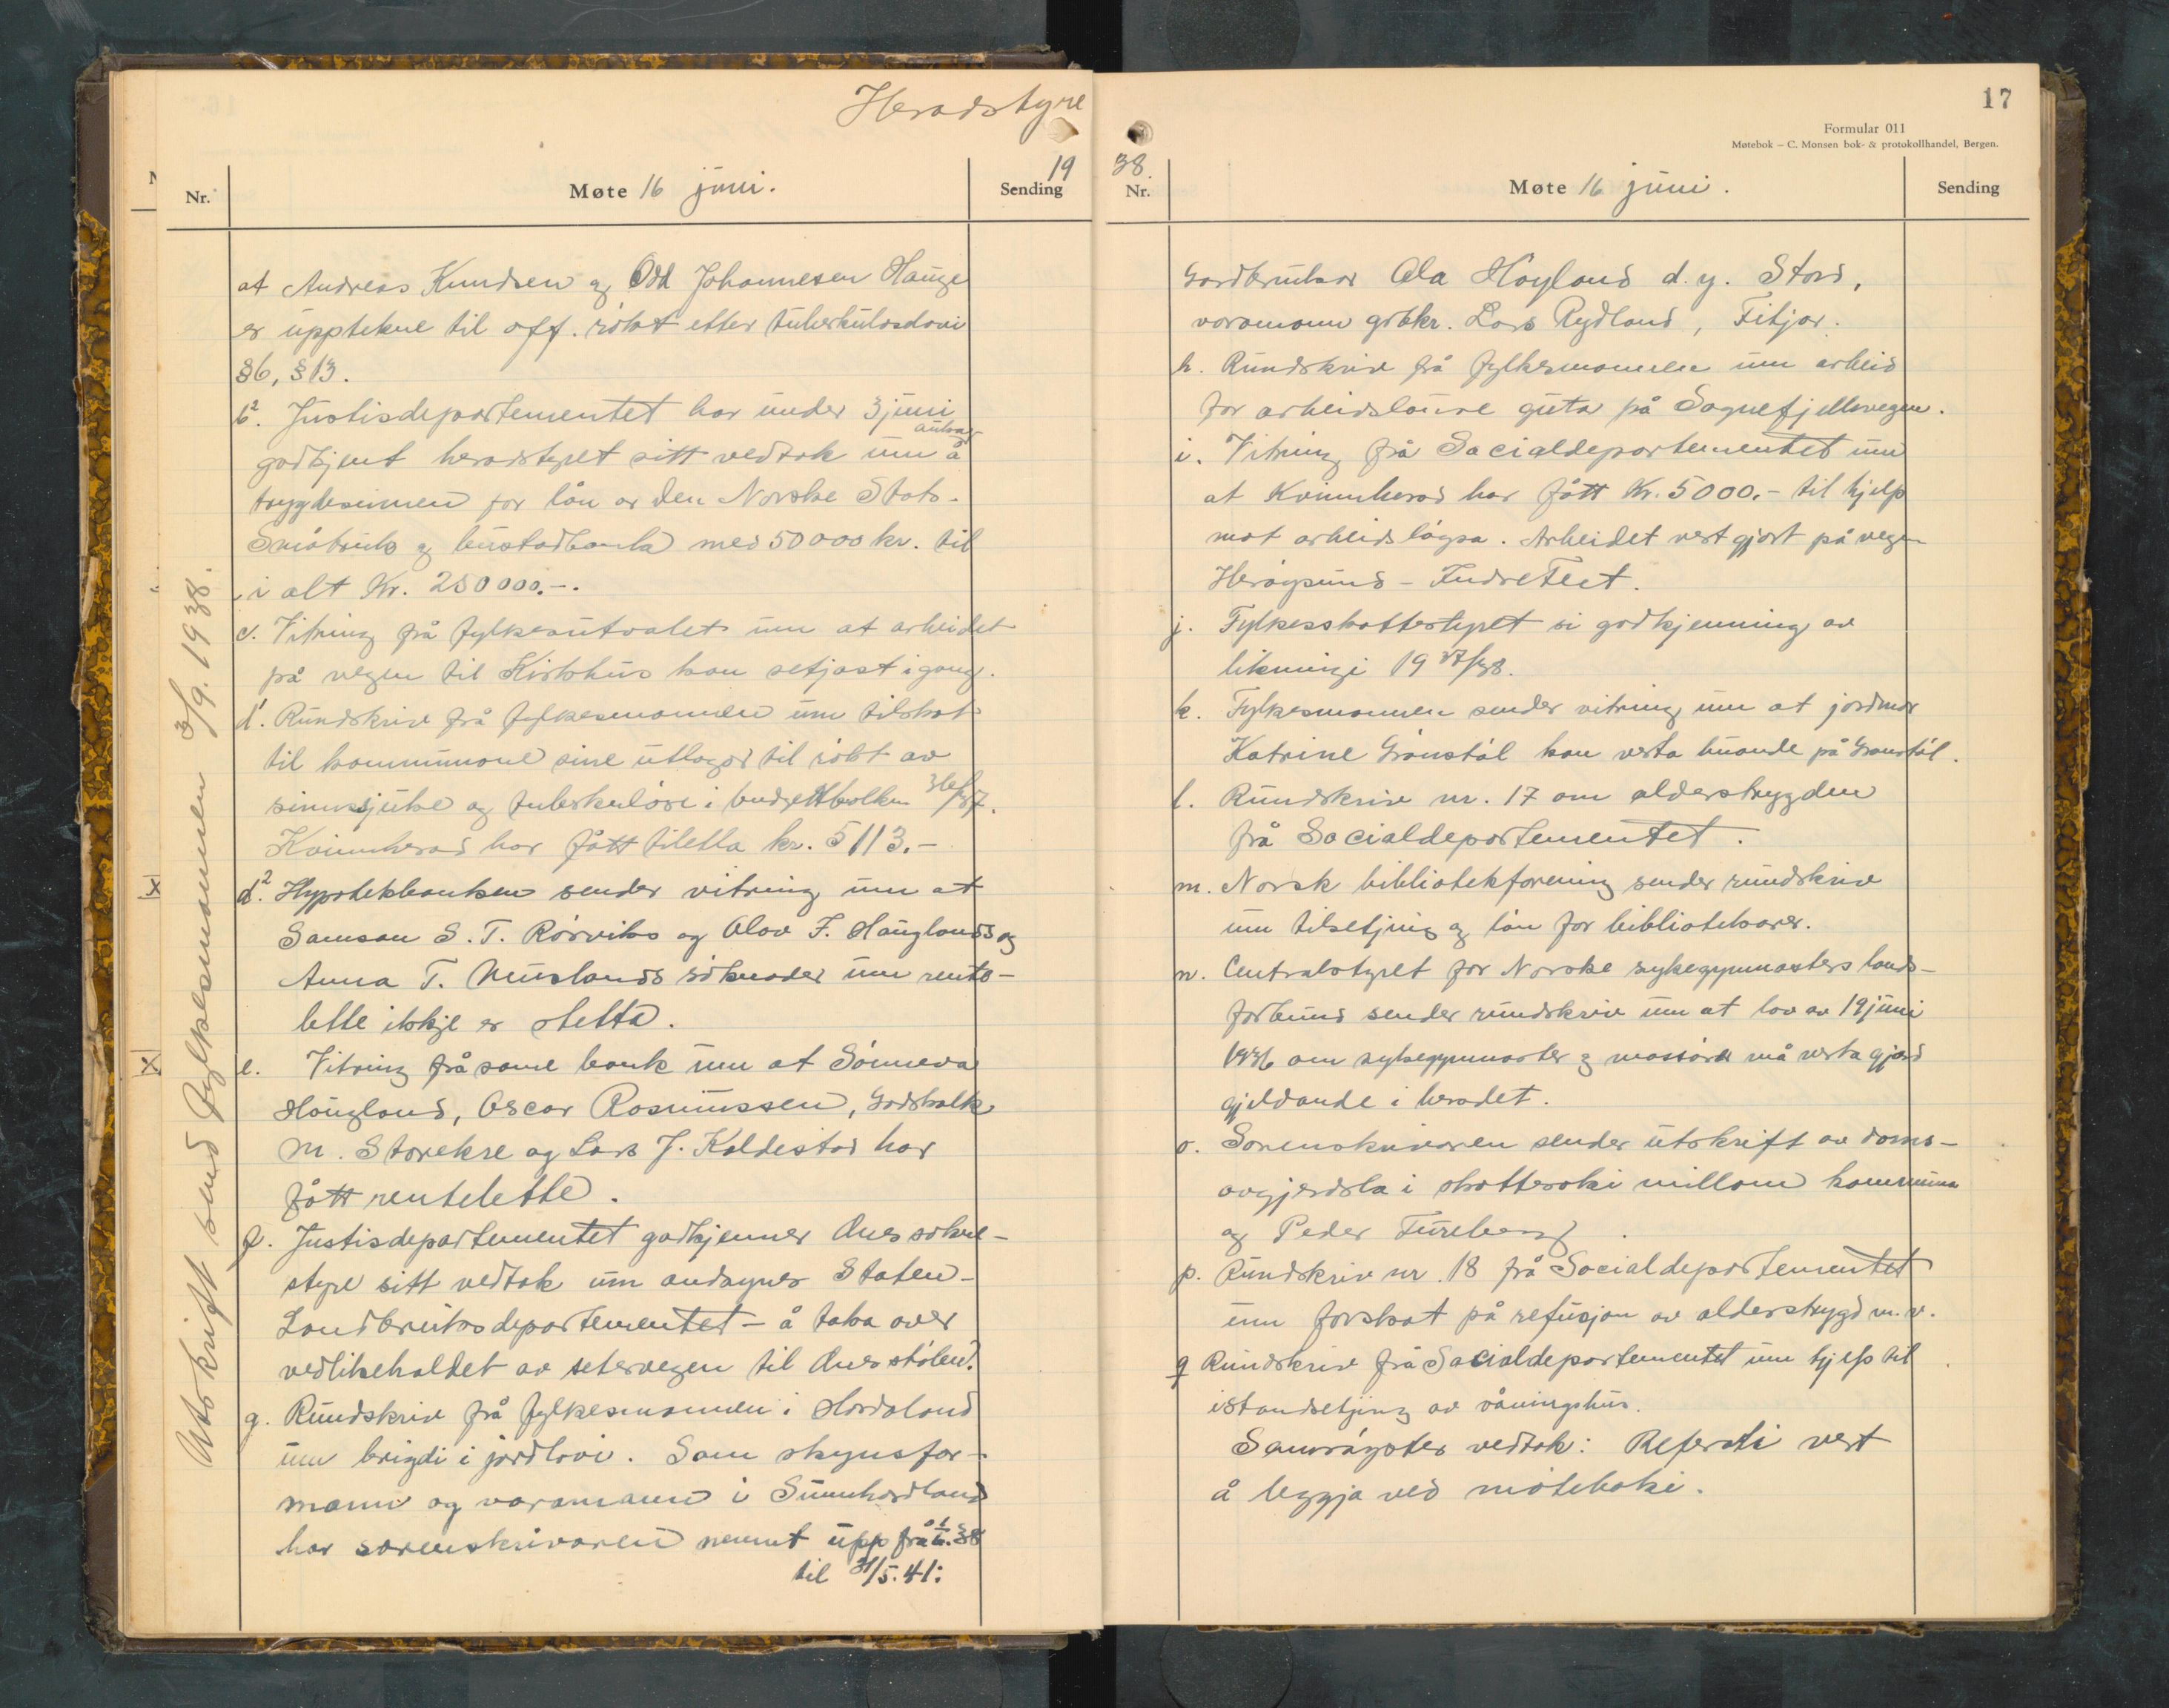 Heradstyre
19
Nr.
Møte 16 juni.
Sending
at Andreas Knudsen og Odd Johannesen Hauge
er upptekne til off. rökt etter tuberkulosdovi
§6, §13.
b². Justisdepartementet har under 3 juni
godkjent heradstyret sitt vedtak um å
auka
trygdesumen for lån av den Norske Stats-
Småbruk og bustadbank med 50000 kr. til
i alt Kr. 250000.-.
c. Vitring frå fylkesutvalet um at arbeidet
på vegen til Kirkhus kan setjast i gang.
d¹. Rundskriv frå fylkesmannen um tilskot
til kommunone sine utlogor til rökt av
sinnssjuke og tuberkulöse i budsjettbolken 36/37.
Kvinnherad har fått tiletla kr. 5113.-
x
d². Hypotekbanken sender vitring um at
Samson S. T. Rörviks og Olav F. Hauglands og
Anna T. Muslands söknader um rente-
lette ikkje er stetta.
x
e. Vitring frå same bank um at Sönneva
Haugland, Oscar Rasmussen, Godskalk
M. Storekre og Lars J. Koldestad har
fått rentelette.
f. Justisdepartementet godkjenner Ænes sokne-
styre sitt vedtak um andsynes Staten-
Landbruksdepartementet - å taka over
vedlikehaldet av setervegen til Ænesstölen.
g. Rundskriv frå fylkesmannen i Hordaland
um brigdi i jordlovi. Som skynsfor-
mann og varamann i Sunnhordland
har sorenskrivaren nemnt upp frå 1/6.38
til 31/5.41:
Utskrift send fylkesmannen 3/9. 1938.
17
Formular 011
Møtebok – C. Monsen bok- & protokollhandel, Bergen.
38.
Nr.
Møte 16 juni.
Sending
Gardbrukar Ola Høyland d.y. Stord,
varamann grbkr. Lars Rydland, Fitjar.
h. Rundskriv frå fylkesmannen um arbeid
for arbeidslause gutar på Sognefjellsvegen.
i. Vitring frå Socialdepartementet um
at Kvinnherad har fått Kr. 5000.- til hjelp
mot arbeidsløysa. Arbeidet vert gjort på vegen
Herøysund - Indre Teet.
j. Fylkesskattestyret si godkjenning av
likningi 19 37/38.
k. Fylkesmannen sender vitring um at jordmor
Katrine Grönstöl kan verta buande på Grönstöl.
l. Rundskriv nr. 17 om alderstrygden
frå Socialdepartementet.
m. Norsk bibliotekforening sender rundskriv
um tilsetjing og lön for bibliotekarer.
n. Centralstyret for Norske sykegymnasters lands-
forbund sender rundskriv um at lov av 19 juni
1936 om sykegymnaster og massörer må verta gjord
gjeldande i heradet.
o. Sorenskrivaren sender utskrift av doms-
avgjerdsla i skattesaki millom kommuna
og Peder Tureberg.
p. Rundskriv nr. 18 frå Socialdepartementet
um forskot på refusjon av alderstrygd m. v.
q Rundskriv frå Socialdepartementet um hjelp til
istandsetjing av våningshus.
Samrøystes vedtak: Referati vert
å leggja ved møteboki.